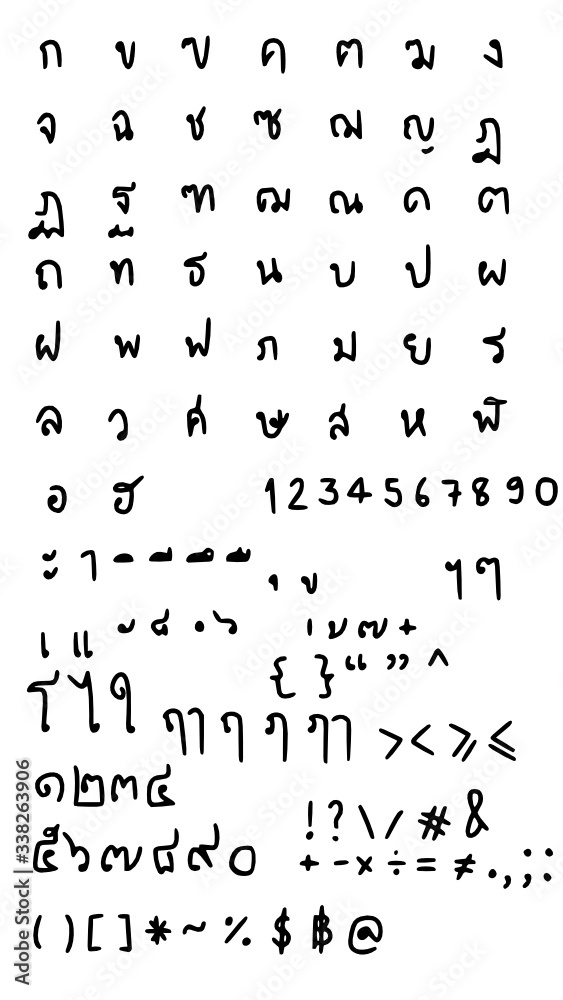 ก ข ฃ ค ฅ ฆ ง
จ ฉ ช ซ ฌ ญ ฎ
ฏ ฐ ฑ ฒ ณ ด ต
ถ ท ธ น บ ป ผ
ฝ พ ฟ ภ ม ย ร
ล ว ศ ษ ส ห ฬ
อ ฮ 1 2 3 4 5 6 7 8 9 0
ะ า ิ ี ึ ื ุ ู ฯ ๆ
เ แ ั ็ ํ ้ ่ ๊ ๋
{ } “ ” ^
โ ไ ใ ฤๅ ฤ ฦ ฦๅ > < ⩾ ⩽
๑ ๒ ๓ ๔
! ? \ / # &
๕ ๖ ๗ ๘ ๙ ๐ + - × ÷ = ≠ . , ; :
( ) [ ] * ~ % $ ฿ @
Adobe Stock | #338263906